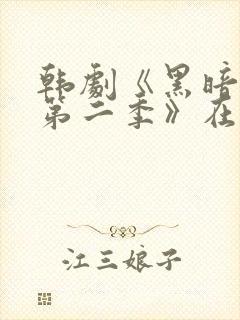 韩劇《黑暗
第二季》在
江三娘子